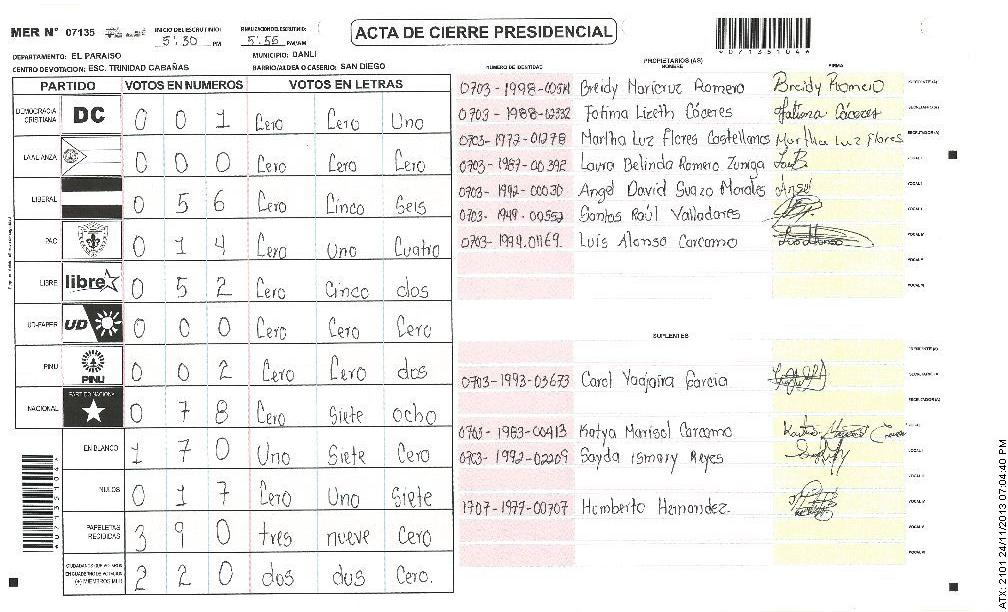 MER N° 07135
INICIO DEL ESCRUTINIO: 5:30 PM
FINALIZACION DEL ESCRUTINIO: 5:55 PM/AM
ACTA DE CIERRE PRESIDENCIAL
DEPARTAMENTO: EL PARAISO
MUNICIPIO: DANLI
CENTRO DE VOTACION: ESC. TRINIDAD CABAÑAS
BARRIO/ALDEA O CASERIO: SAN DIEGO
PARTIDO VOTOS EN NUMEROS VOTOS EN LETRAS
DEMOCRACIA CRISTIANA DC 0 0 1 Cero Cero Uno
LA ALIANZA 0 0 0 Cero Cero Cero
LIBERAL 0 5 6 Cero Cinco Seis
PAC 0 1 4 Cero Uno Cuatro
LIBRE libre 0 5 2 Cero Cinco dos
UD-FAPER UD 0 0 0 Cero Cero Cero
PINU PINU 0 0 2 Cero Cero dos
NACIONAL PARTIDO NACIONAL 0 7 8 Cero Siete ocho
EN BLANCO 1 7 0 Uno Siete Cero
NULOS 0 1 7 Cero Uno Siete
PAPELETAS RECIBIDAS 3 9 0 tres nueve Cero
CIUDADANOS QUE VOTARON EN CUADERNO DE VOTACION (+) MIEMBROS MER 2 2 0 dos dos Cero.
PROPIETARIOS (AS)
NUMERO DE IDENTIDAD NOMBRE FIRMA
0703-1998- Breidy Maricruz Romero Breidy Romero
0703-1988-02332 Fatima Lizeth Cáceres Fatima Cáceres
0703-1972-01278 Martha Luz Flores Castellanos Martha Luz Flores
0703-1987-00392 Laura Belinda Romero Zuniga
0703-1992-00030 Angel David Suazo Morales Angel
0703-1949-00552 Santos Raúl Valladares
0703-1994.01169. Luis Alonso Carcamo
SUPLENTES
0703-1993-03673 Carol Yaajaira Garcia
0703-1983-00413 Katya Marisol Carcamo
0703-1992-02209 Sayda Ismary Reyes
1707-1977-00707 Humberto Hernandez.
ATX: 2101 24/11/2013 07:04:40 PM